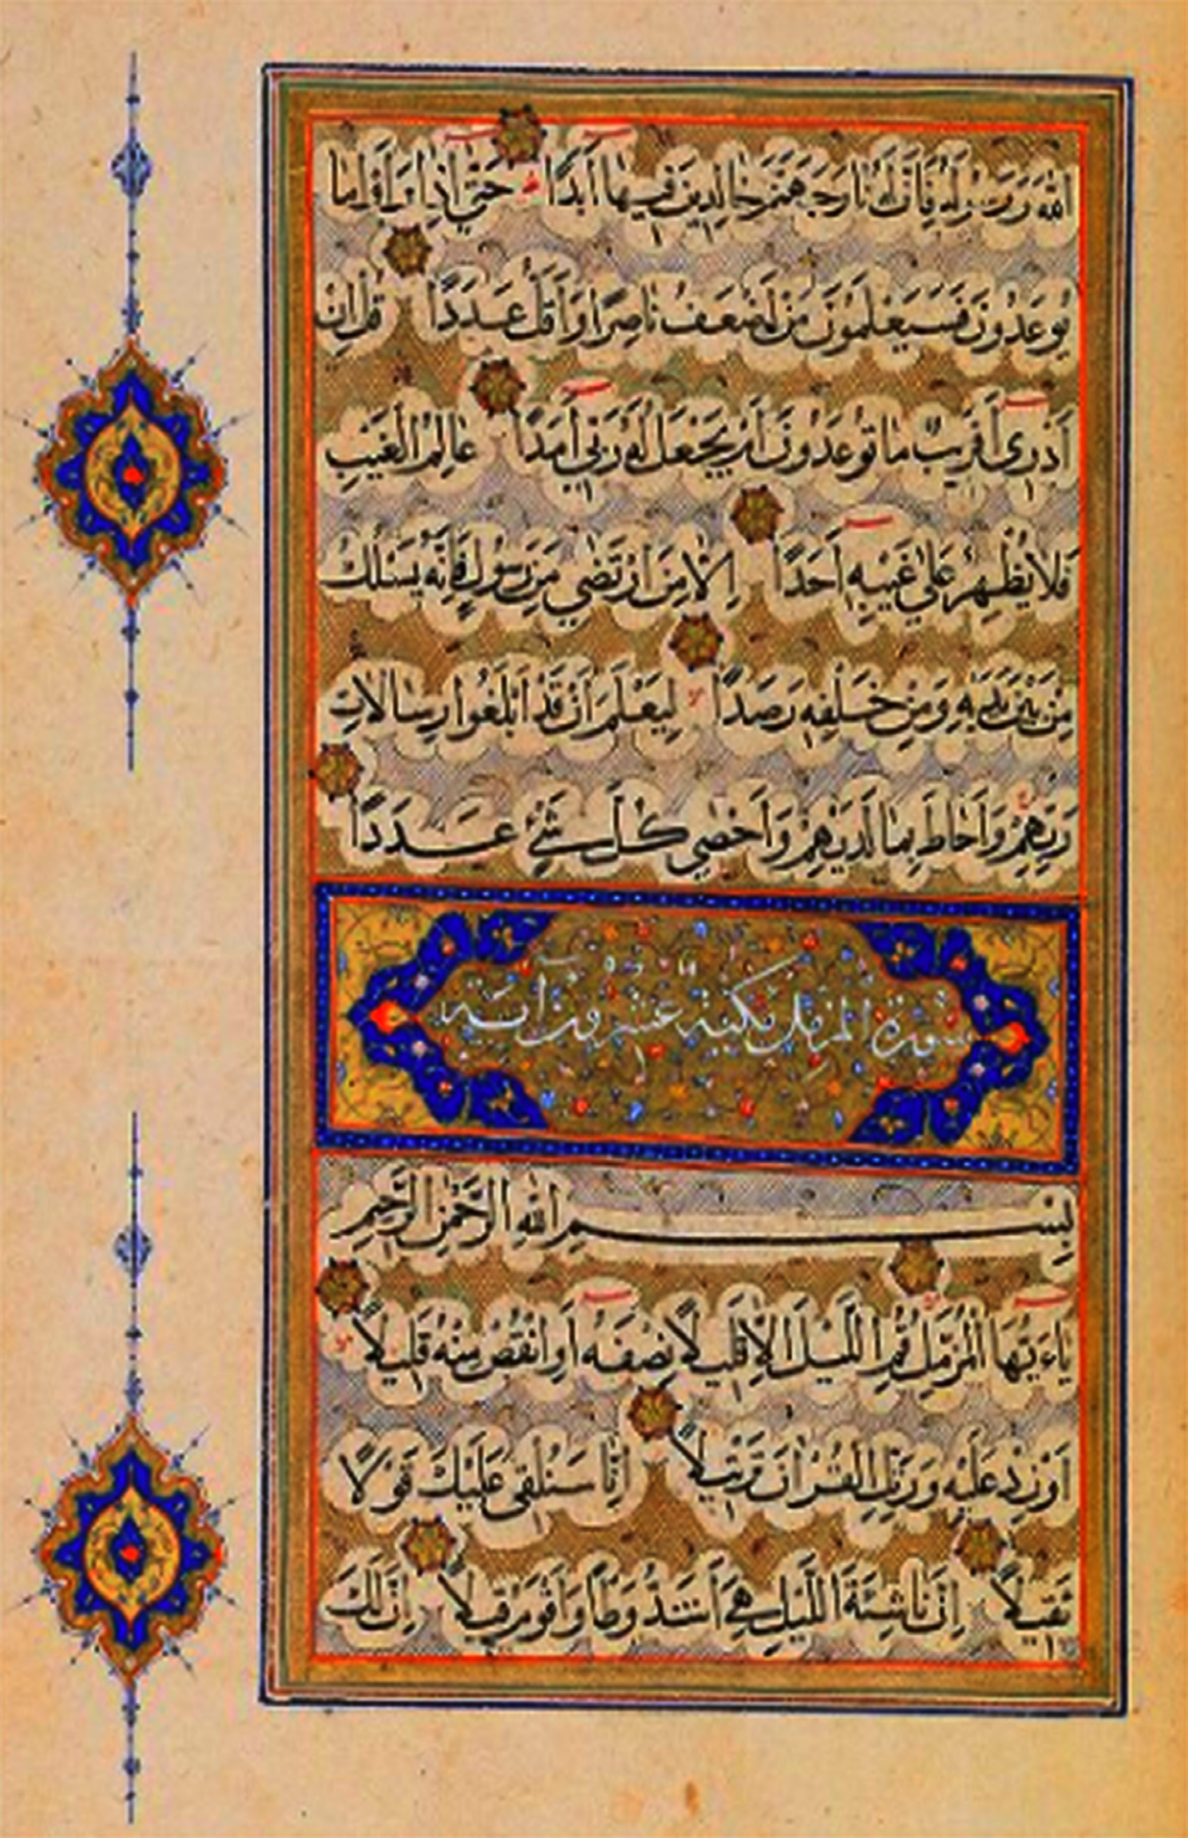 اللهَ وَرَسُولَهُ فَاِنَّ لَهُ نَارَ جَهَنَّمَ خَالِدِينَ فِيهَا اَبَدًا حَتّٰى اِذَا رَاَوْا مَا
يُوعَدُونَ فَسَيَعْلَمُونَ مَنْ اَضْعَفُ نَاصِرًا وَاَقَلُّ عَدَدًا قُلْ اِنْ
اَدْرِى اَقَرِيبٌ مَا تُوعَدُونَ اَمْ يَجْعَلُ لَهُ رَبِّى اَمَدًا عَالِمُ الْغَيْبِ
فَلَا يُظْهِرُ عَلٰى غَيْبِهِ اَحَدًا اِلَّا مَنِ ارْتَضٰى مِنْ رَسُولٍ فَاِنَّهُ يَسْلُكُ
مِنْ بَيْنِ يَدَيْهِ وَمِنْ خَلْفِهِ رَصَدًا لِيَعْلَمَ اَنْ قَدْ اَبْلَغُوا رِسَالَاتِ
رَبِّهِمْ وَاَحَاطَ بِمَا لَدَيْهِمْ وَاَحْصٰى كُلَّ شَىْءٍ عَدَدًا
سورة المزمل مكية عشرون اية
بِسْمِ اللهِ الرَّحْمٰنِ الرَّحِيمِ
يَاءَيُّهَا الْمُزَّمِّلُ قُمِ اللَّيْلَ اِلَّا قَلِيلًا نِصْفَهُ اَوِ انْقُصْ مِنْهُ قَلِيلًا
اَوْ زِدْ عَلَيْهِ وَرَتِّلِ الْقُرْاٰنَ تَرْتِيلًا اِنَّا سَنُلْقِى عَلَيْكَ قَوْلًا
ثَقِيلًا اِنَّ نَاشِئَةَ اللَّيْلِ هِىَ اَشَدُّ وَطْأً وَاَقْوَمُ قِيلًا اِنَّ لَكَ